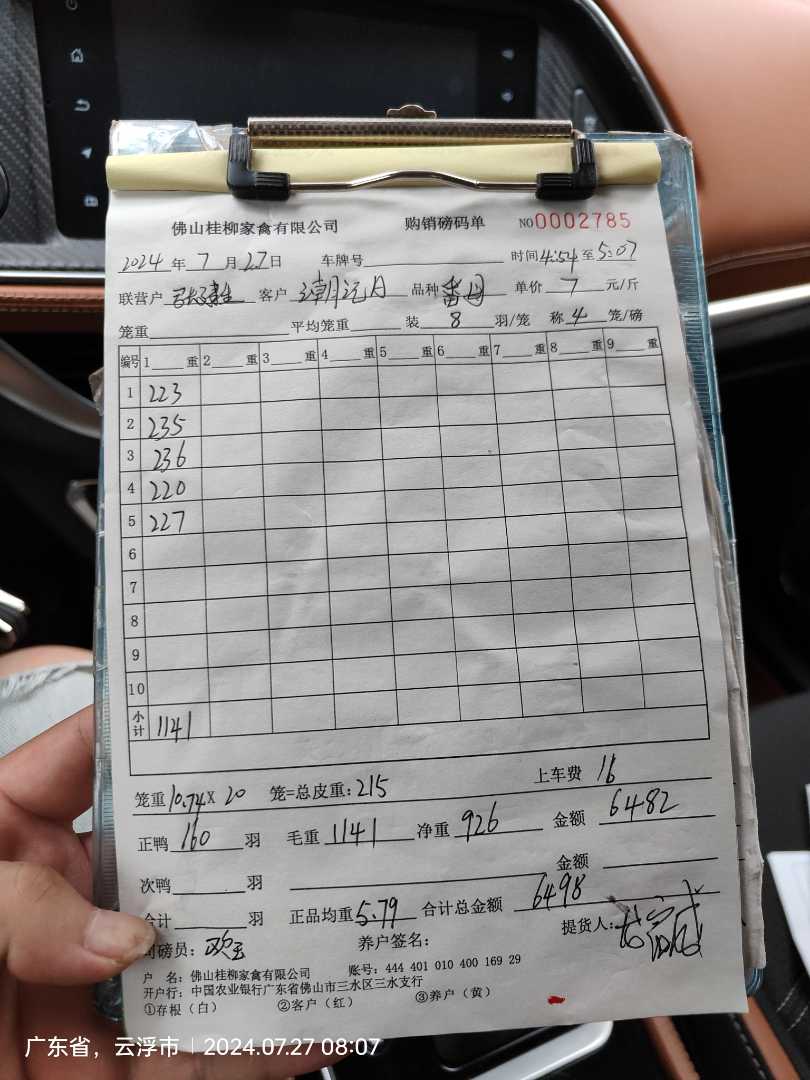 佛山桂柳家禽有限公司 购销磅码单 NO0002785
2024年7月27日 车牌号 时间4:54至5:07
联营户 客户 潮记 品种番母 单价7元/斤
笼重 平均笼重 装8羽/笼 称4笼/磅
编号 1 重 2 重 3 重 4 重 5 重 6 重 7 重 8 重 9 重
1 223
2 235
3 236
4 220
5 227
6
7
8
9
10
小计 1141
笼重10.74X20 笼=总皮重:215 上车费 16
正鸭160羽 毛重1141 净重926 金额6482
次鸭 羽 金额
合计 羽 正品均重5.79 合计总金额6498
司磅员: 养户签名: 提货人:
户 名:佛山桂柳家禽有限公司 账号:444 401 010 400 169 29
开户行:中国农业银行广东省佛山市三水区三水支行
①存根(白) ②客户(红) ③养户(黄)
广东省,云浮市 | 2024.07.27 08:07